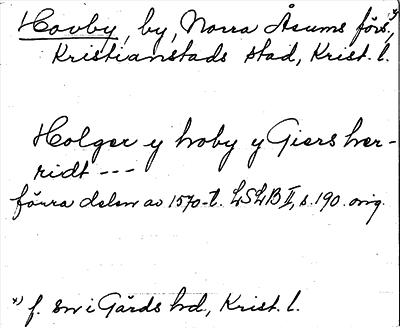 Hovby, by, Norra Åsums förs.,*)
Kristianstads stad, Krist. l.
Holger y hoby y Giers her-
ridt ---
förra delen av 1570-t. LSLB II, s. 190. orig.
*) f. sn i Gärds hd, Krist. l.